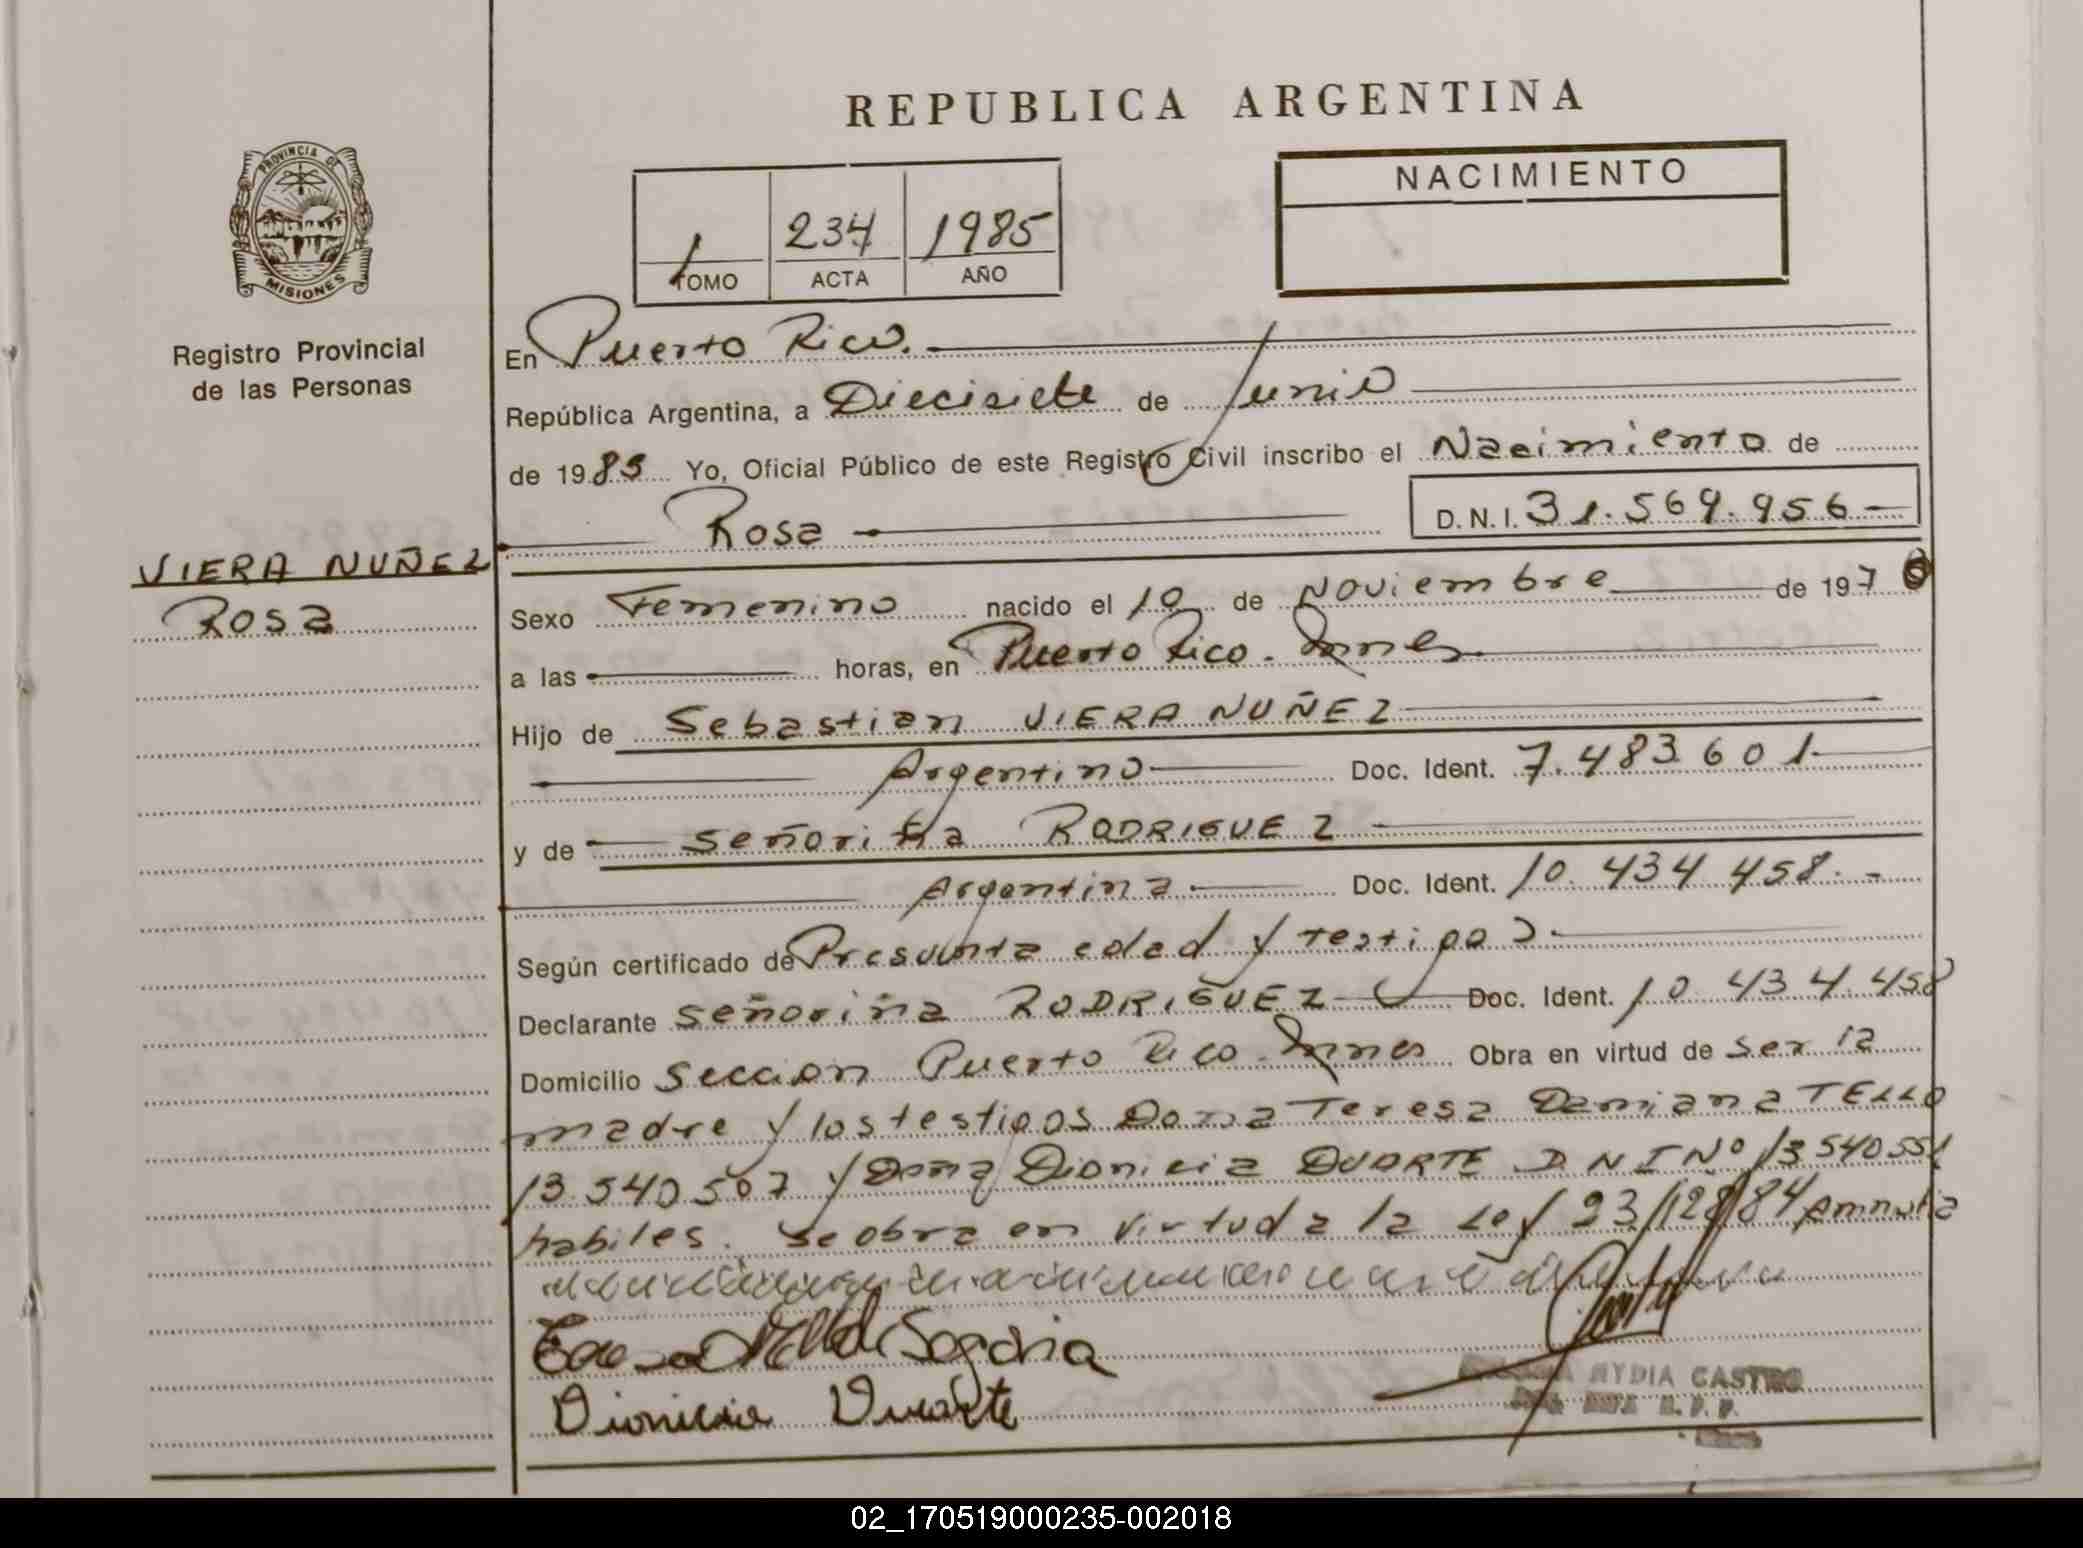 REPUBLICA ARGENTINA
PROVINCIA DE
MISIONES
Registro Provincial
de las Personas
VIERA NUÑEZ
Rosa
1 234 1985
TOMO ACTA AÑO
NACIMIENTO
En Puerto Rico.
República Argentina, a Diecisiete de Junio
de 1985 Yo, Oficial Público de este Registro Civil inscribo el Nacimiento de
Rosa D.N.I. 31.569.956
Sexo Femenino nacido el 10 de Noviembre de 1976
a las horas, en Puerto Rico.
Hijo de Sebastian VIERA NUÑEZ
Argentino Doc. Ident. 7.483.601
y de Señoriña RODRIGUEZ
Argentina. Doc. Ident. 10.434.458.-
Según certificado de Presunta edad y testigos.
Declarante Señoriña RODRIGUEZ Doc. Ident. 10.434.458
Domicilio Seccion Puerto Rico. Obra en virtud de ser la
madre y los testigos Doña Teresa Damiana TELLO
13.540.507 y Doña Dionicia DUARTE D N I Nº 13.540.551
habiles. Se obra en virtud a la Ley 23/128/84 Amnistia
Dionicia Duarte
NYDIA CASTRO
02_170519000235-002018